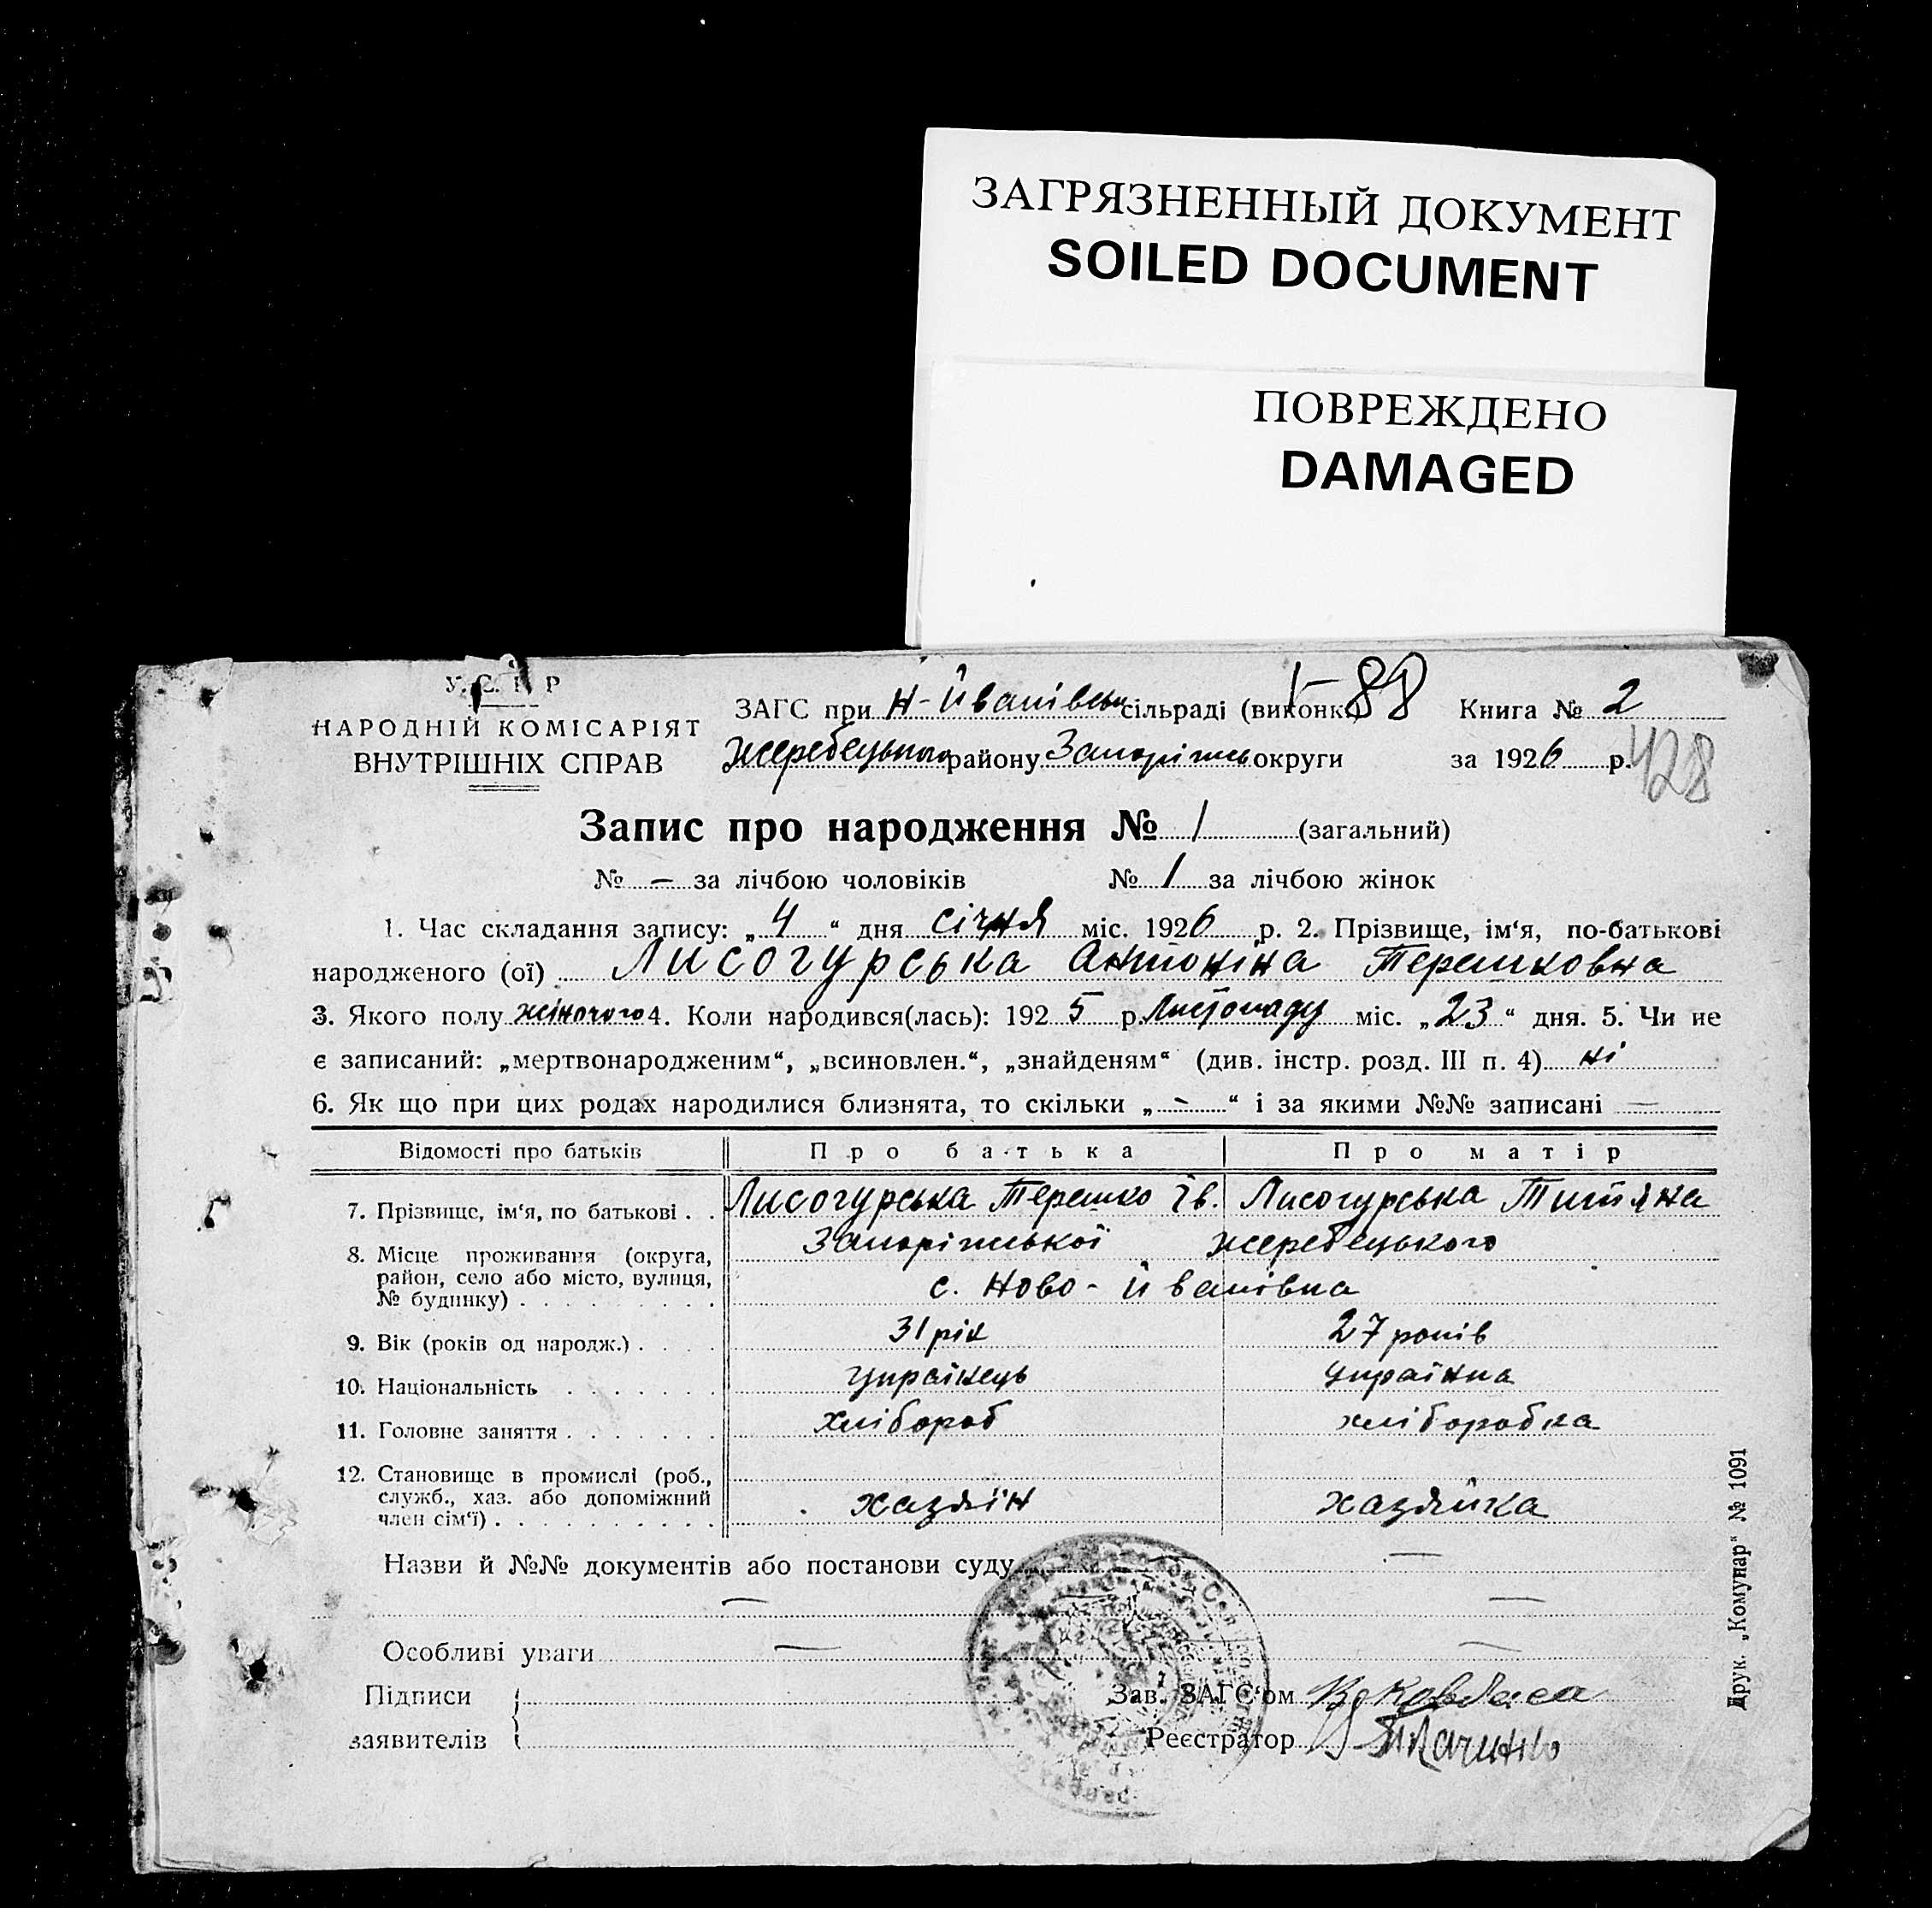 ЗАГРЯЗНЕННЫЙ ДОКУМЕНТ
SOILED DOCUMENT
ПОВРЕЖДЕНО
DAMAGED
У. С. Р Р
НАРОДНІЙ КОМІСАРІЯТ
ВНУТРІШНІХ СПРАВ
ЗАГС при Н-Йванівськ сільраді (виконк. 88 Книга № 2
Жеребецького району Запоріжськ округи за 1926 р. 428
Запис про народження № 1 (загальний)
№ — за лічбою чоловіків № 1 за лічбою жінок
1. Час складання запису: „4“ дня січня міс. 1926 р. 2. Прізвище, ім‘я, по-батькові
народженого (ої) Лисогурська Антоніна Терешковна
3. Якого полу жіночого 4. Коли народився(лась): 1925 р. Листопаду міс. „23“ дня. 5. Чи не
є записаний: „мертвонародженим“, „всиновлен.“, „знайденям“ (див. інстр. розд. III п. 4) ні
6. Як що при цих родах народилися близнята, то скільки „-“ і за якими №№ записані —
Відомості про батьків Про батька Про матір
7. Прізвище, ім‘я, по батькові . . Лисогурська Терешко Ів. Лисогурська Титяна
8. Місце проживання (округа, район, село або місто, вулиця, № будинку) . . . . . . . . . Запоріжської Жеребецького
с. Ново-Йванівка
9. Вік (років од народж.) . . . . 31 рік 27 років
10. Національність . . . . . . . українець українка
11. Головне заняття . . . . . . . хлібороб хліборобка
12. Становище в промислі (роб., служб., хаз. або допоміжний член сім‘ї) . . . . . . . . . . хазяїн хазяйка
Назви й №№ документів або постанови суду —
— —
Особливі уваги — —
Підписи Зав. ЗАГС‘ом
заявителів Реєстратор
Друк. „Комунар“ № 1091